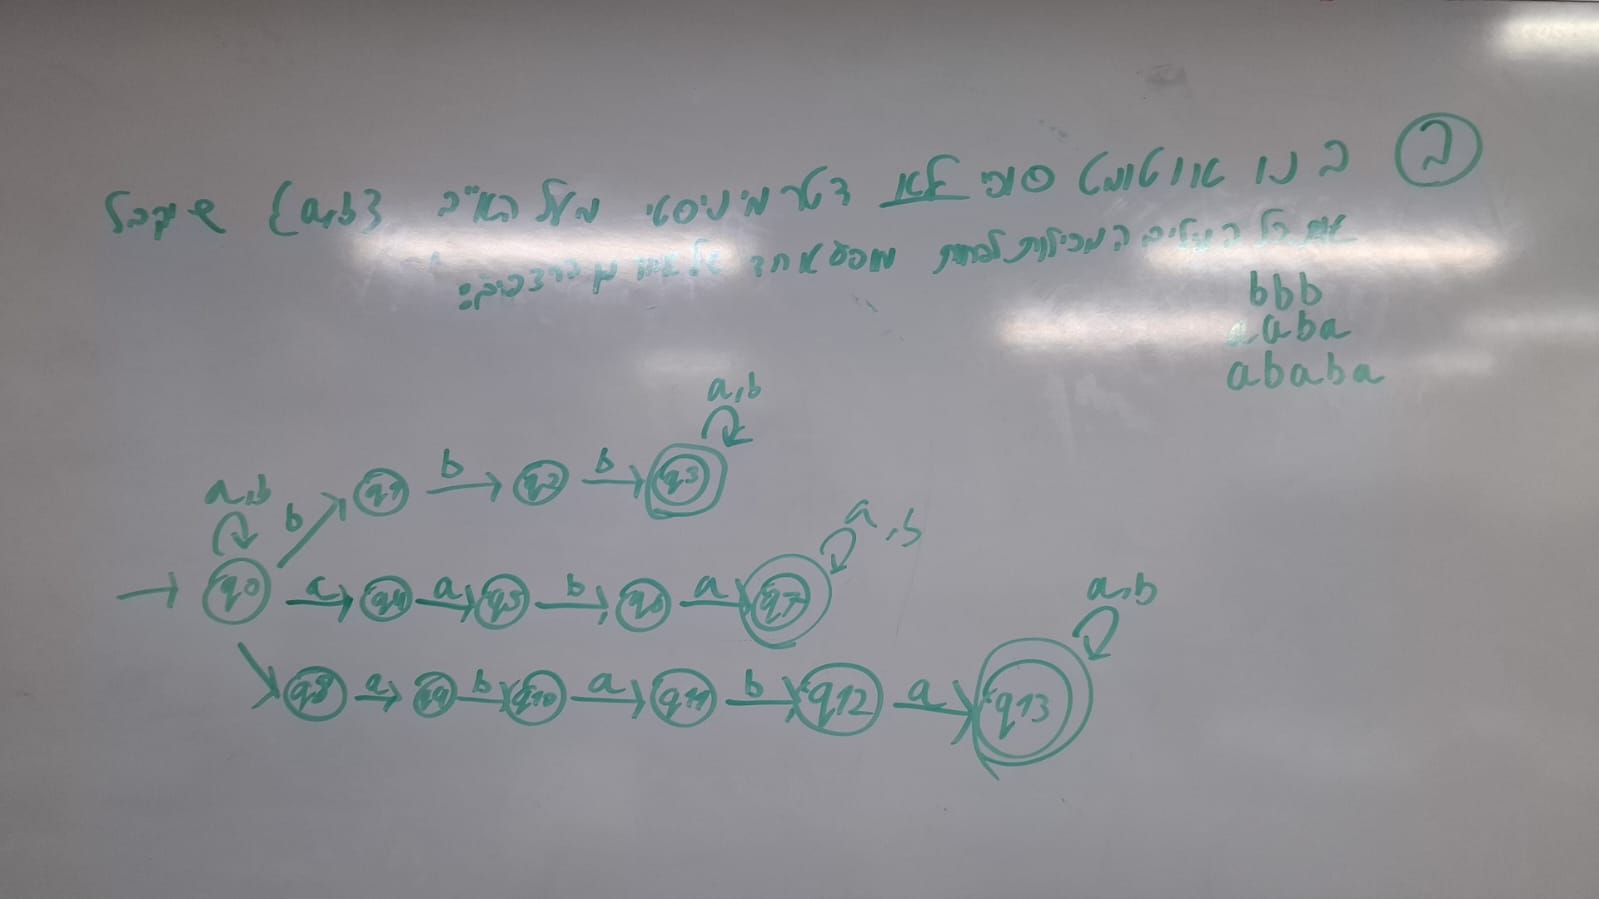 ב בנו אוטומט סופי לא דטרמיניסטי מעל הא"ב {a,b} שיקבל
את כל המילים המכילות לפחות מופע אחד של אחד מן הרצפים:
bbb
aaba
ababa
a,b
a,b
b
q1
b
q2
b
q3
q0
a
q4
a
q5
b
q6
a
q7
a,b
q8
a
q9
b
q10
a
q11
b
q12
a
q13
a,b